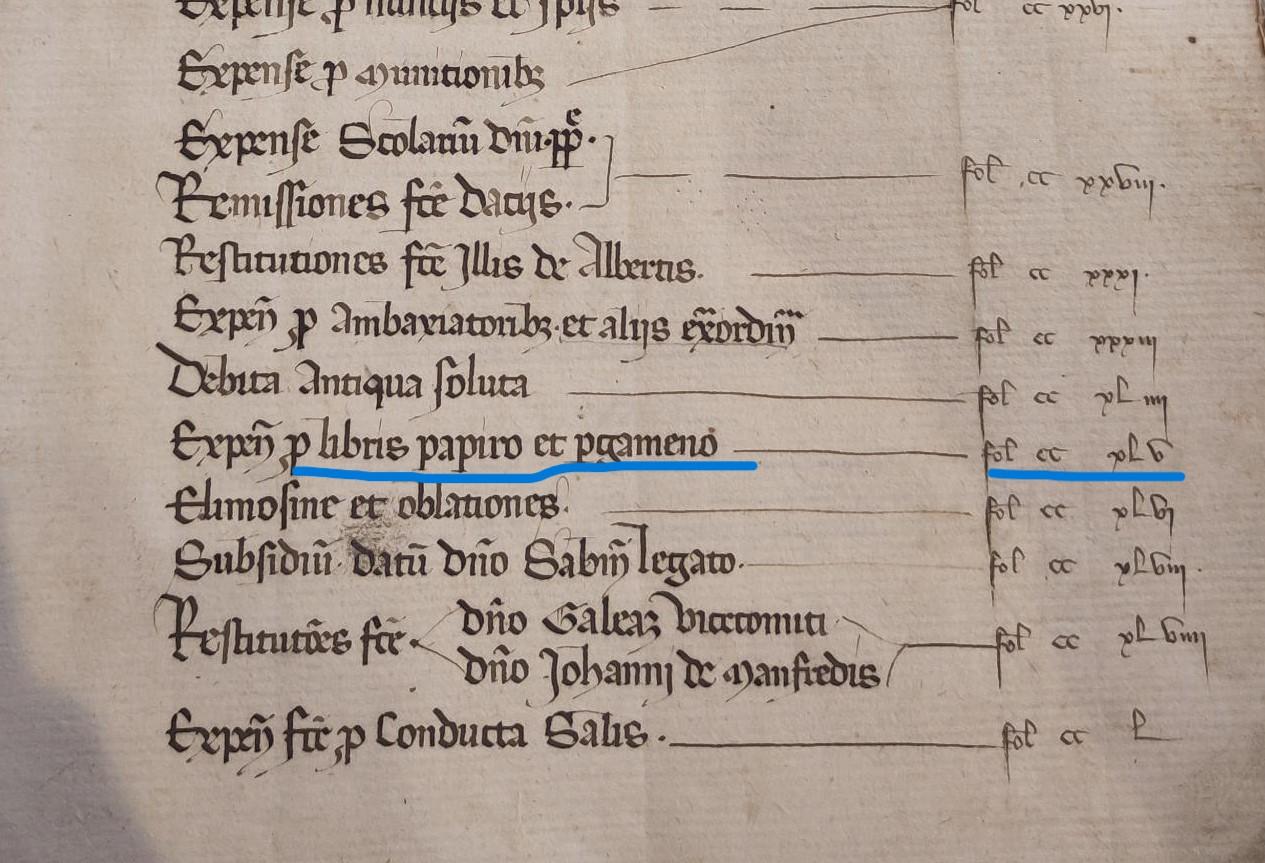 Expense ꝓ nuntiis et spiis fol cc xxvi.
Expense ꝓ Munitionibꝫ
Expense Scolariū dn̄i ppͤ.
Remissiones fcē Daciis. fol cc xxviii.
Restitutiones fcē Illis de Albertis. fol cc xxxi.
Expeñ ꝓ Ambaxiatoribꝫ et aliis ex̄ordiñ fol cc xxxiii
Debita Antiqua soluta fol cc xL iiii
Expeñ ꝓ libris papiro et ꝑgameno fol cc xLv
Elimosine et oblationes. fol cc xLvi
Subsidiū datū dn̄o Sabiñ legato. fol cc xLviii.
Restitutōes fcē dn̄o Galeaꝫ vicecomiti
dn̄o Johanni de Manfredis fol cc xL viiii
Expeñ fcē ꝓ Conducta Salis. fol cc L